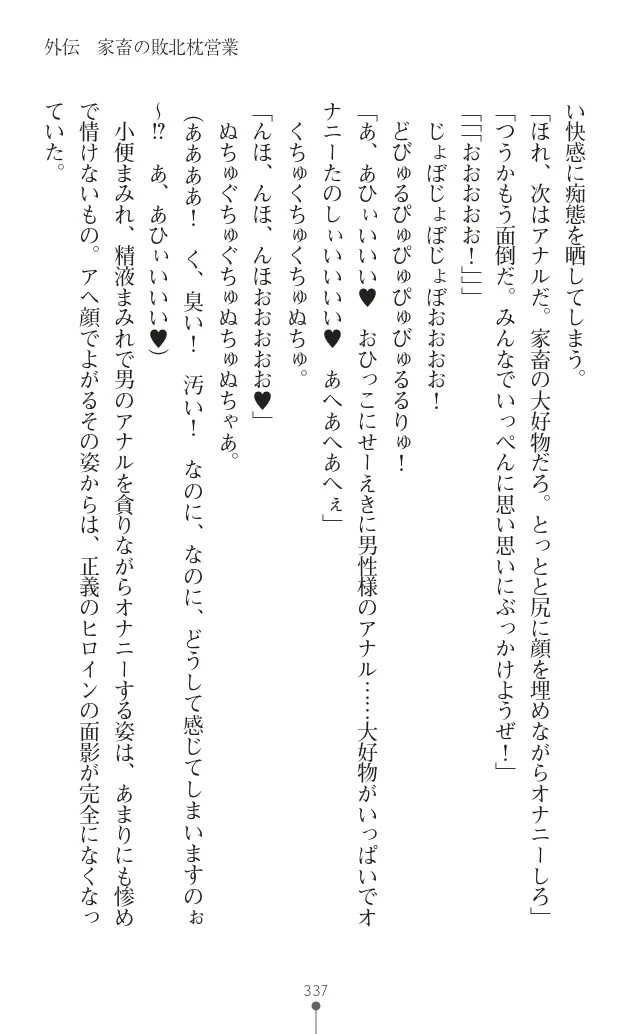 外伝　家畜の敗北枕営業
い快感に痴態を晒してしまう。
「ほれ、次はアナルだ。家畜の大好物だろ。とっとと尻に顔を埋めながらオナニーしろ」
「つうかもう面倒だ。みんなでいっぺんに思い思いにぶっかけようぜ！」
「「「おおおおお！」」」
じょぼじょぼじょぼおおおお！
どびゅるぴゅぴゅぴゅびゅるるりゅ！
「あ、あひぃいいい♥　おひっこにせーえきに男性様のアナル……大好物がいっぱいでオ
ナニーたのしぃいいいい♥　あへあへあへぇ」
くちゅくちゅくちゅぬちゅ。
「んほ、んほ、んほおおおおお♥」
ぬちゅぐちゅぐちゅぬちゅぬちゃあ。
（ああああ！　く、臭い！　汚い！　なのに、なのに、どうして感じてしまいますのぉ
～!?　あ、あひぃいいい♥）
小便まみれ、精液まみれで男のアナルを貪りながらオナニーする姿は、あまりにも惨め
で情けないもの。アヘ顔でよがるその姿からは、正義のヒロインの面影が完全になくなっ
ていた。
337